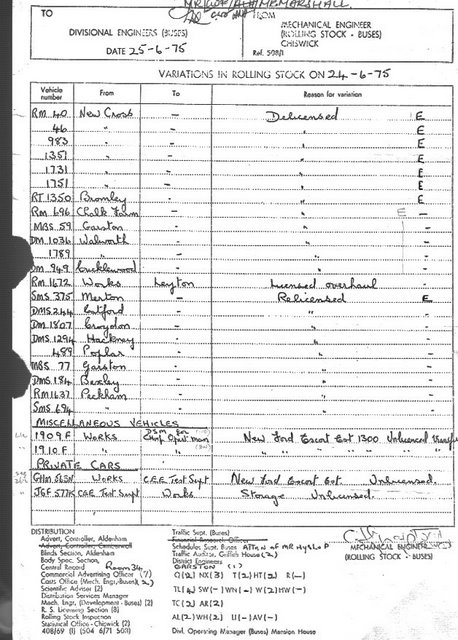 TO
FROM
DIVISIONAL ENGINEERS (BUSES)
MECHANICAL ENGINEER
(ROLLING STOCK - BUSES)
CHISWICK
DATE 25-6-75
Ref. 508/1
VARIATIONS IN ROLLING STOCK ON 24-6-75
Vehicle number From To Reason for variation
RM 40 New Cross - Delicensed E
46 " - " E
983 " - " E
1351 " - " E
1731 " - " E
1751 " - " E
RT 1350 Bromley - " E
RM 696 Chalk Farm - " E -
MBS 59 Garston - " -
DM 1036 Walworth - " -
1789 " - " -
DM 949 Cricklewood - " -
RM 1672 Works Leyton Licensed overhaul -
SMS 375 Merton - Relicensed E
DMS 244 Catford - " -
DM 1807 Croydon - " -
DMS 1294 Hackney - " -
489 Poplar - " -
MBS 77 Garston - " -
DMS 184 Bexley - " -
RM 1637 Peckham - " -
SMS 694 " - " -
MISCELLANEOUS VEHICLES
1909 F Works New Ford Escort Est 1300 Unlicenced
1910 F " " " " " " "
PRIVATE CARS
Works C.E.E. Test Supt New Ford Escort Est. Unlicensed.
C.E.E Test Supt Works Storage Unlicensed.
DISTRIBUTION
Advert. Controller, Aldenham
Blinds Section, Aldenham
Body Spec. Section,
Central Record Room 34
Commercial Advertising Officer (7)
Costs Office (Mech. Eng. Buses) (2)
Scientific Adviser (2)
Distribution Services Manager
Mech. Engr. (Development - Buses) (2)
R. S. Licensing Section (8)
Rolling Stock Inspection
Statistical Office - Chiswick (2)
408/69 (1) (504 6/71 508)
Traffic Supt. (Buses)
Financial Research Officer
Schedules Supt. Buses Attn of MR HYSLOP
Traffic Auditor, Griffith House (2)
District Engineers
GARSTON (1)
Q(2) NX(3) T(2) HT(2) R(-)
TL(4) SW(-) WN(-) W(2) HW(-)
TC(2) AR(2)
AL(2) WH(2) U(-) AV(-)
Divl. Operating Manager (Buses) Mansion House
MECHANICAL ENGINEER
(ROLLING STOCK - BUSES)